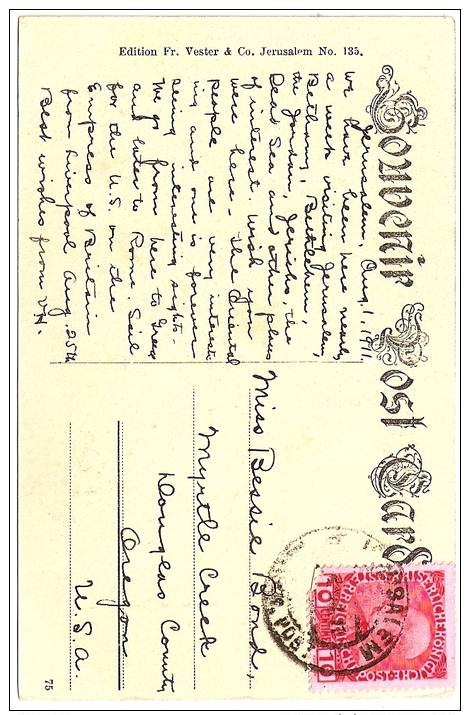 Edition Fr. Vester & Co. Jerusalem No. 135.
Souvenir Post Card
Jerusalem, Aug. 1, 1911.
We have been here nearly
a week visiting Jerusalem,
Bethany, Bethlehem,
the Jordan, Jericho, the
Dead Sea and other places
of interest. Wish you
were here - the Oriental
people are very interest-
ing and one is forever
seeing interesting sights -
We go from here to
and later to Rome. Sail
for the U.S. on the
Empress of Britain
from Liverpool Aug. 25th
Best wishes from
Miss Bessie Bond,
Myrtle Creek
Douglas County
Oregon
U.S.A.
10 10
JERUSALEM
75